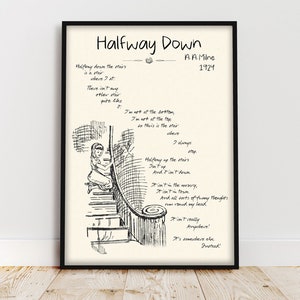 Halfway Down
A.A.Milne
1924
Halfway down the stairs
is a stair
where I sit.
There isn't any
other stair
quite like
it.
I'm not at the bottom,
I'm not at the top;
so this is the stair
where
I always
stop.
Halfway up the stairs
Isn't up
And it isn't down.
It isn't in the nursery,
It isn't in town.
And all sorts of funny thoughts
run round my head.
It isn't really
Anywhere!
It's somewhere else
Instead!